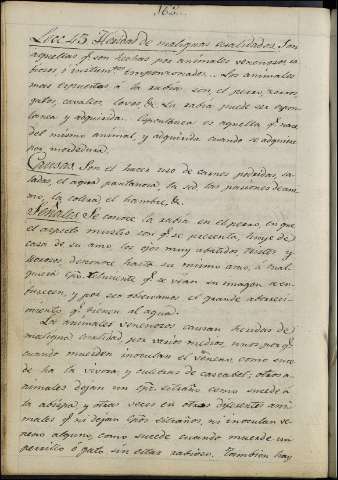 163.
Lecc. 43 Heridas de malignas cualidades. Son
aquellas q.e son hechas por animales venenosos, ra-
biosos e instrumentos emponzoñados... Los animales
mas expuestos a la rabia son el perro, zorros,
gatos, cavallos, lovos &. La rabia puede ser espon-
tanea y adquirida. Espontanea es aquella q.e nace
del mismo animal, y adquirida cuando se adquiere
por mordedura.
Causas. Son el hacer uso de carnes podridas, sa-
ladas, el agua pantanosa, la sed, las pasiones de ani-
mo, la colera, el hambre, &.
Señales. Se conoce la rabia en el perro, en que
el aspecto mustio con q.e se presenta, huye de
casa de su amo, los ojos muy abatidos tristes y
llorosos, desconoce hasta su mismo amo, a cual
quiera q.e se vean su imagen se en-
furecen, y por eso observamos el grande aborreci-
miento q.e tienen al agua.
Los animales venenosos causan heridas de
maligna cualidad por varios medios, unos por q.e
cuando muerden inoculan el veneno, como suce-
de a la vivora y culebra de cascabel; otros a-
nimales dejan un estraño como sucede á
la abispa, y otras veces en otras diferentes ani-
males q.e ni dejan estraños, ni inoculan ve-
neno alguno, como sucede cuando muerde un
perrillo ó gato sin estar rabioso. Tambien hay